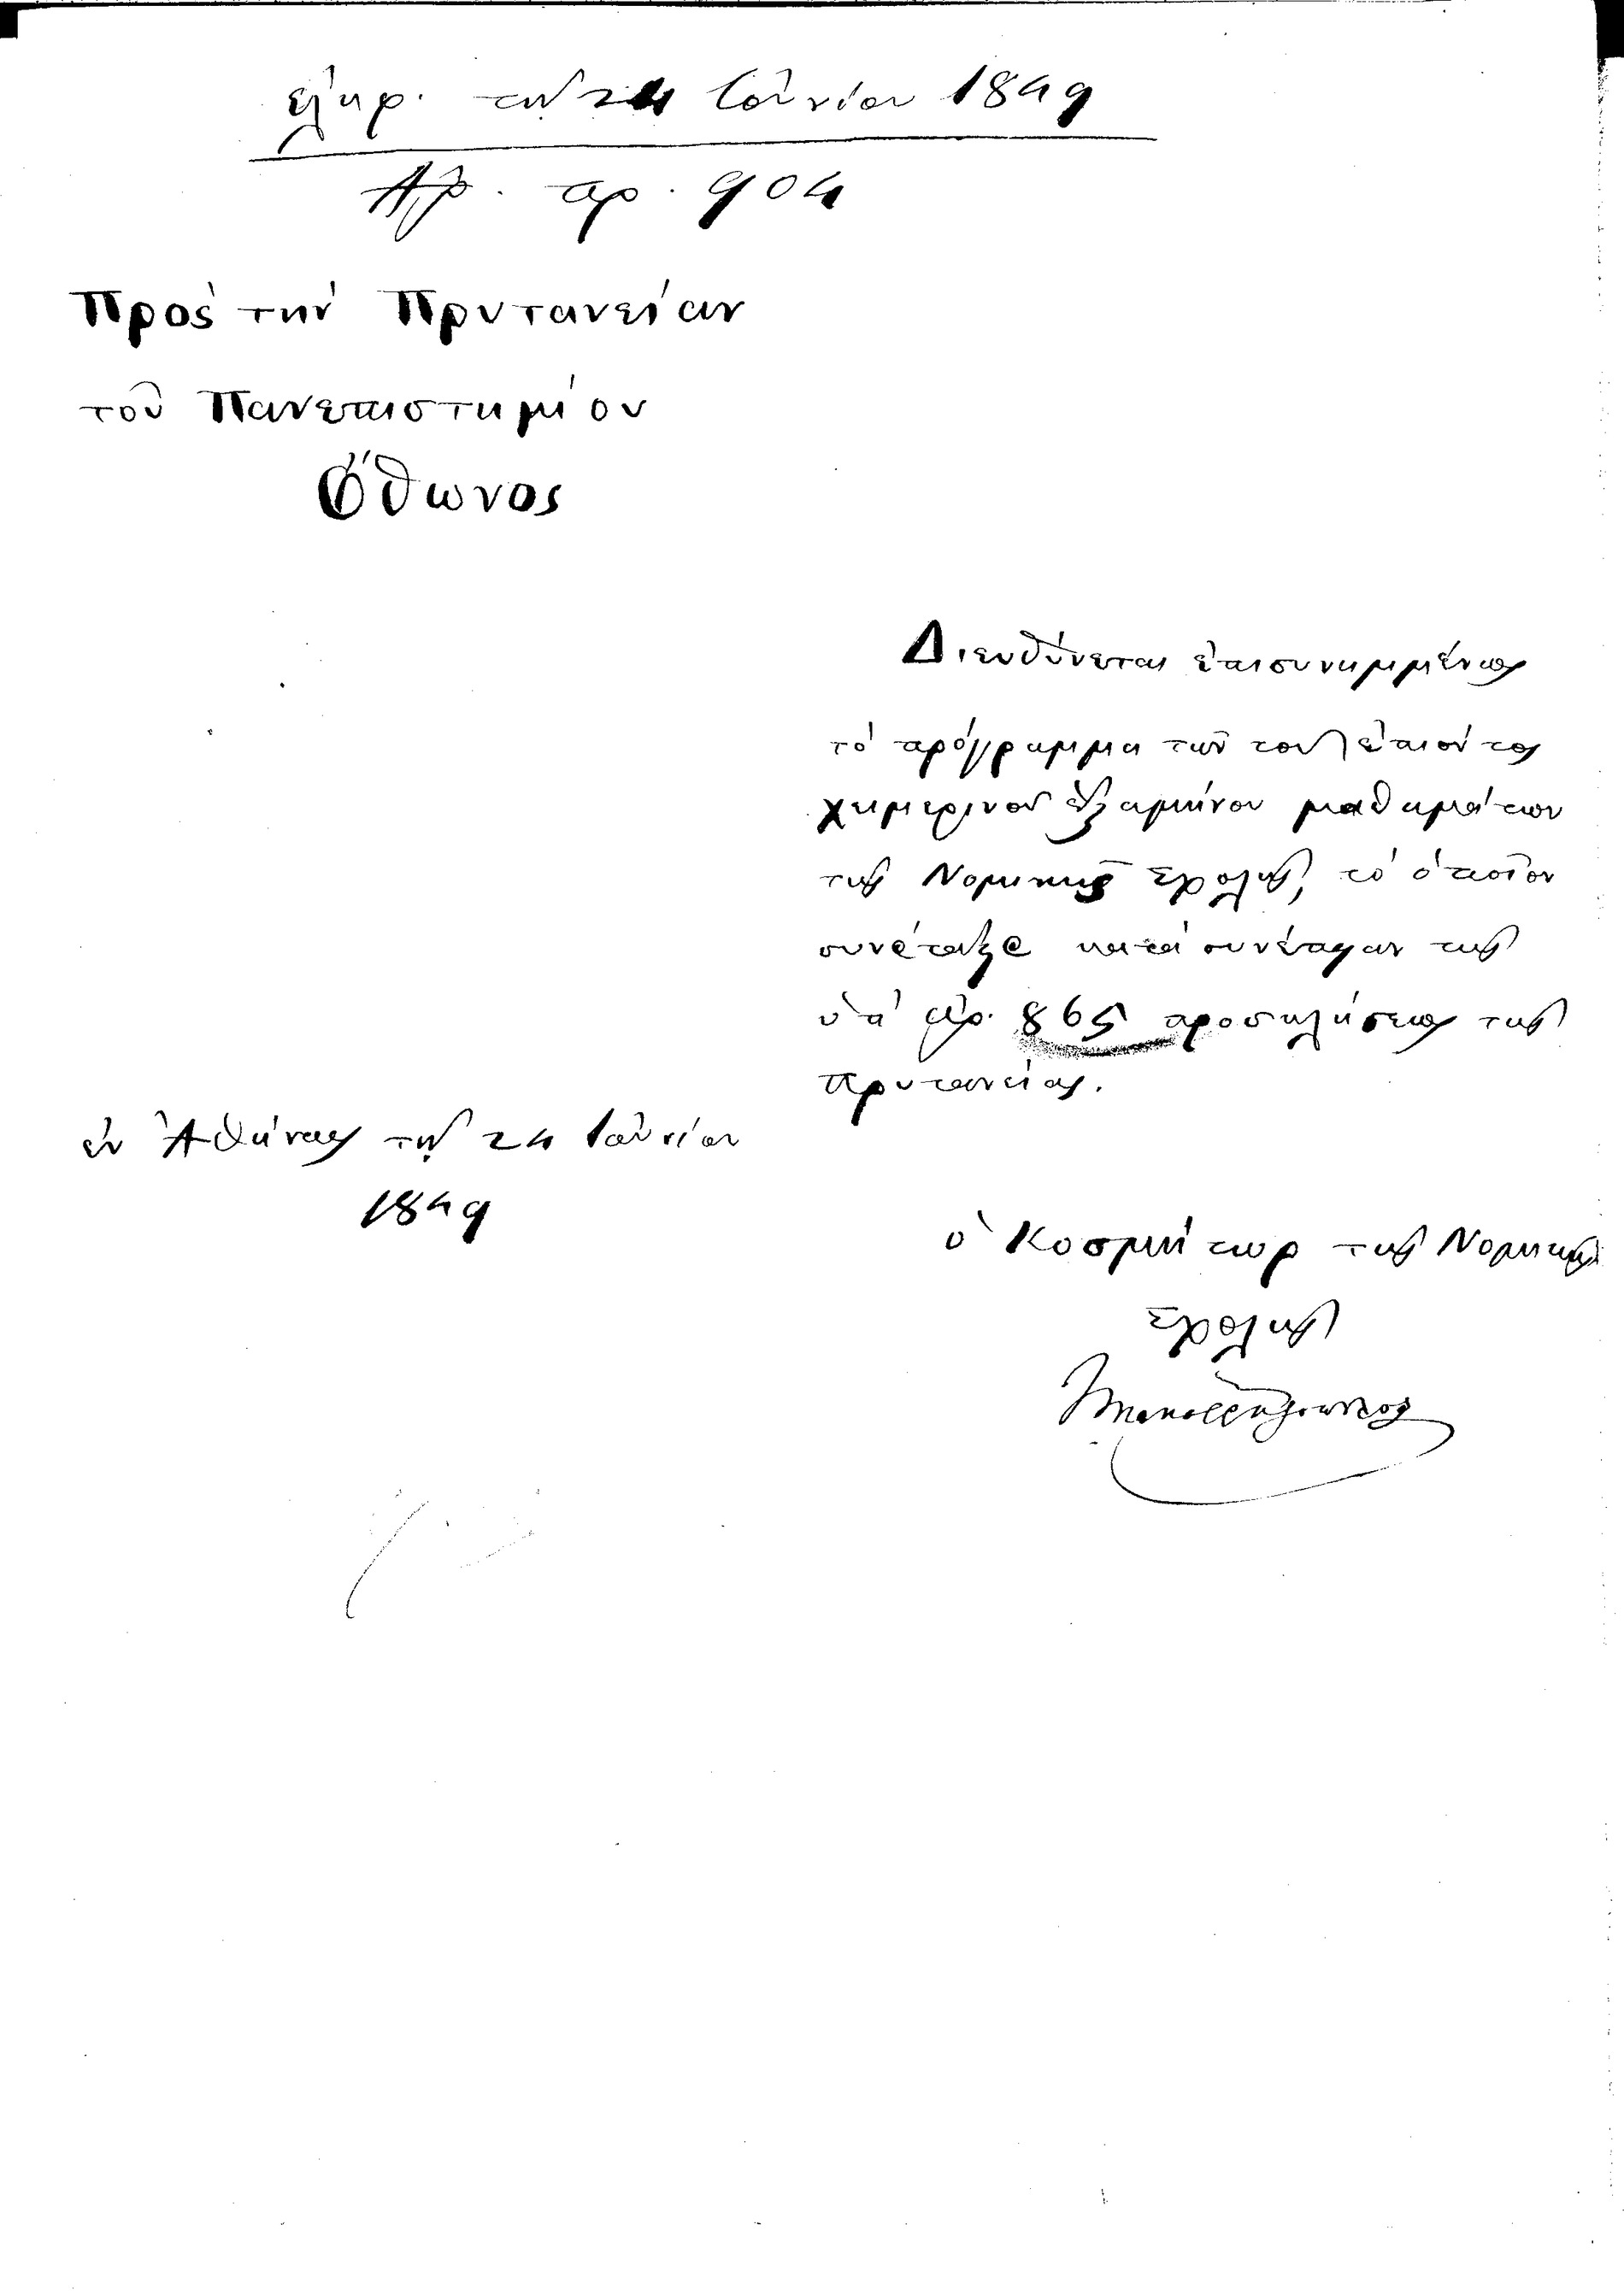 ἐλήφ. τῇ 24 Ἰουνίου 1849
Ἀρ. πρ. 904
Πρὸς τὴν Πρυτανείαν
τοῦ Πανεπιστημίου
Ὄθωνος
Διευθύνεται ἐπισυνημμένως
τὸ πρόγραμμα τῶν τοῦ ἐπιόντος
χειμερινοῦ ἑξαμήνου μαθημάτων
τῆς Νομικῆς Σχολῆς, τὸ ὁποῖον
συνέταξε κατὰ συνέπειαν τῆς
ὑπ' ἀρ. 865 προσκλήσεως τῆς
Πρυτανείας.
ἐν Ἀθήναις τῇ 24 Ἰουνίου
1849
ὁ Κοσμήτωρ τῆς Νομικῆς
Σχολῆς